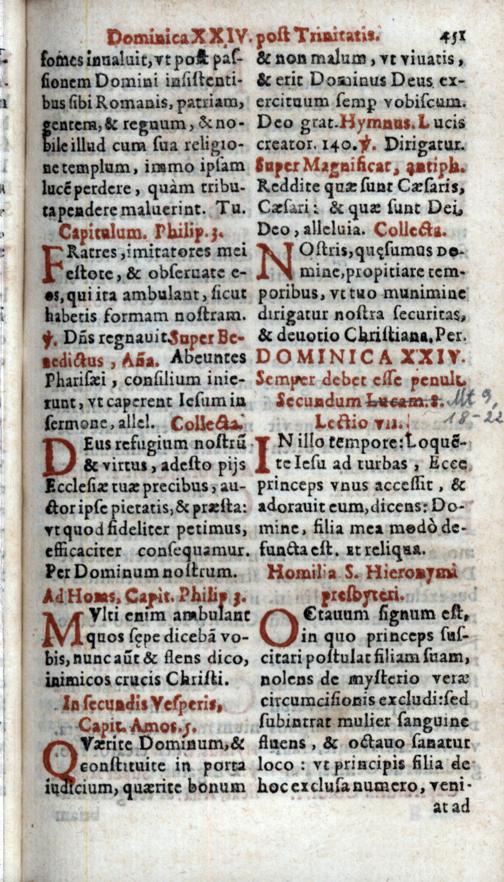 Dominica XXIV. post Trinitatis. 451
fomes inualuit, vt post pas-
sionem Domini insistenti-
bus sibi Romanis, patriam,
gentem, & regnum, & no-
bile illud cum sua religio-
ne templum, immo ipsam
lucē perdere, quàm tribu-
ta pendere maluerint. Tu.
Capitulum. Philip. 3.
FRatres, imitatores mei
estote, & obseruate e-
os, qui ita ambulant, sicut
habetis formam nostram.
℣. Dñs regnauit. Super Be-
nedictus, Aña. Abeuntes
Pharisæi, consilium inie-
runt, vt caperent Iesum in
sermone, allel. Collecta.
DEus refugium nostrū
& virtus, adesto pijs
Ecclesiæ tuæ precibus, au-
ctor ipse pietatis, & præsta:
vt quod fideliter petimus,
efficaciter consequamur.
Per Dominum nostrum.
Ad Horas, Capit. Philip 3.
MVlti enim ambulant
quos sępe dicebā vo-
bis, nunc aūt & flens dico,
inimicos crucis Christi.
In secundis Vesperis,
Capit. Amos. 5.
QVærite Dominum, &
constituite in porta
iudicium, quærite bonum
& non malum, vt viuatis,
& erit Dominus Deus ex-
ercituum semp vobiscum.
Deo grat. Hymnus. Lucis
creator. 140. ℣. Dirigatur.
Super Magnificat, antiph.
Reddite quæ sunt Cæsaris,
Cæsari: & quæ sunt Dei,
Deo, alleluia. Collecta.
NOstris, quęsumus Do-
mine, propitiare tem-
poribus, vt tuo munimine
dirigatur nostra securitas,
& deuotio Christiana. Per.
DOMINICA XXIV.
Semper debet esse penult.
Secundum Lucam. 8. Mt 9,
Lectio vii. 18-22
IN illo tempore: Loquē-
te Iesu ad turbas, Ecce
princeps vnus accessit, &
adorauit eum, dicens: Do-
mine, filia mea modò de-
functa est. et reliqua.
Homilia S. Hieronymi
presbyteri.
OCtauum signum est,
in quo princeps sus-
citari postulat filiam suam,
nolens de mysterio veræ
circumcisionis excludi: sed
subintrat mulier sanguine
fluens, & octauo sanatur
loco: vt principis filia de
hoc exclusa numero, veni-
at ad